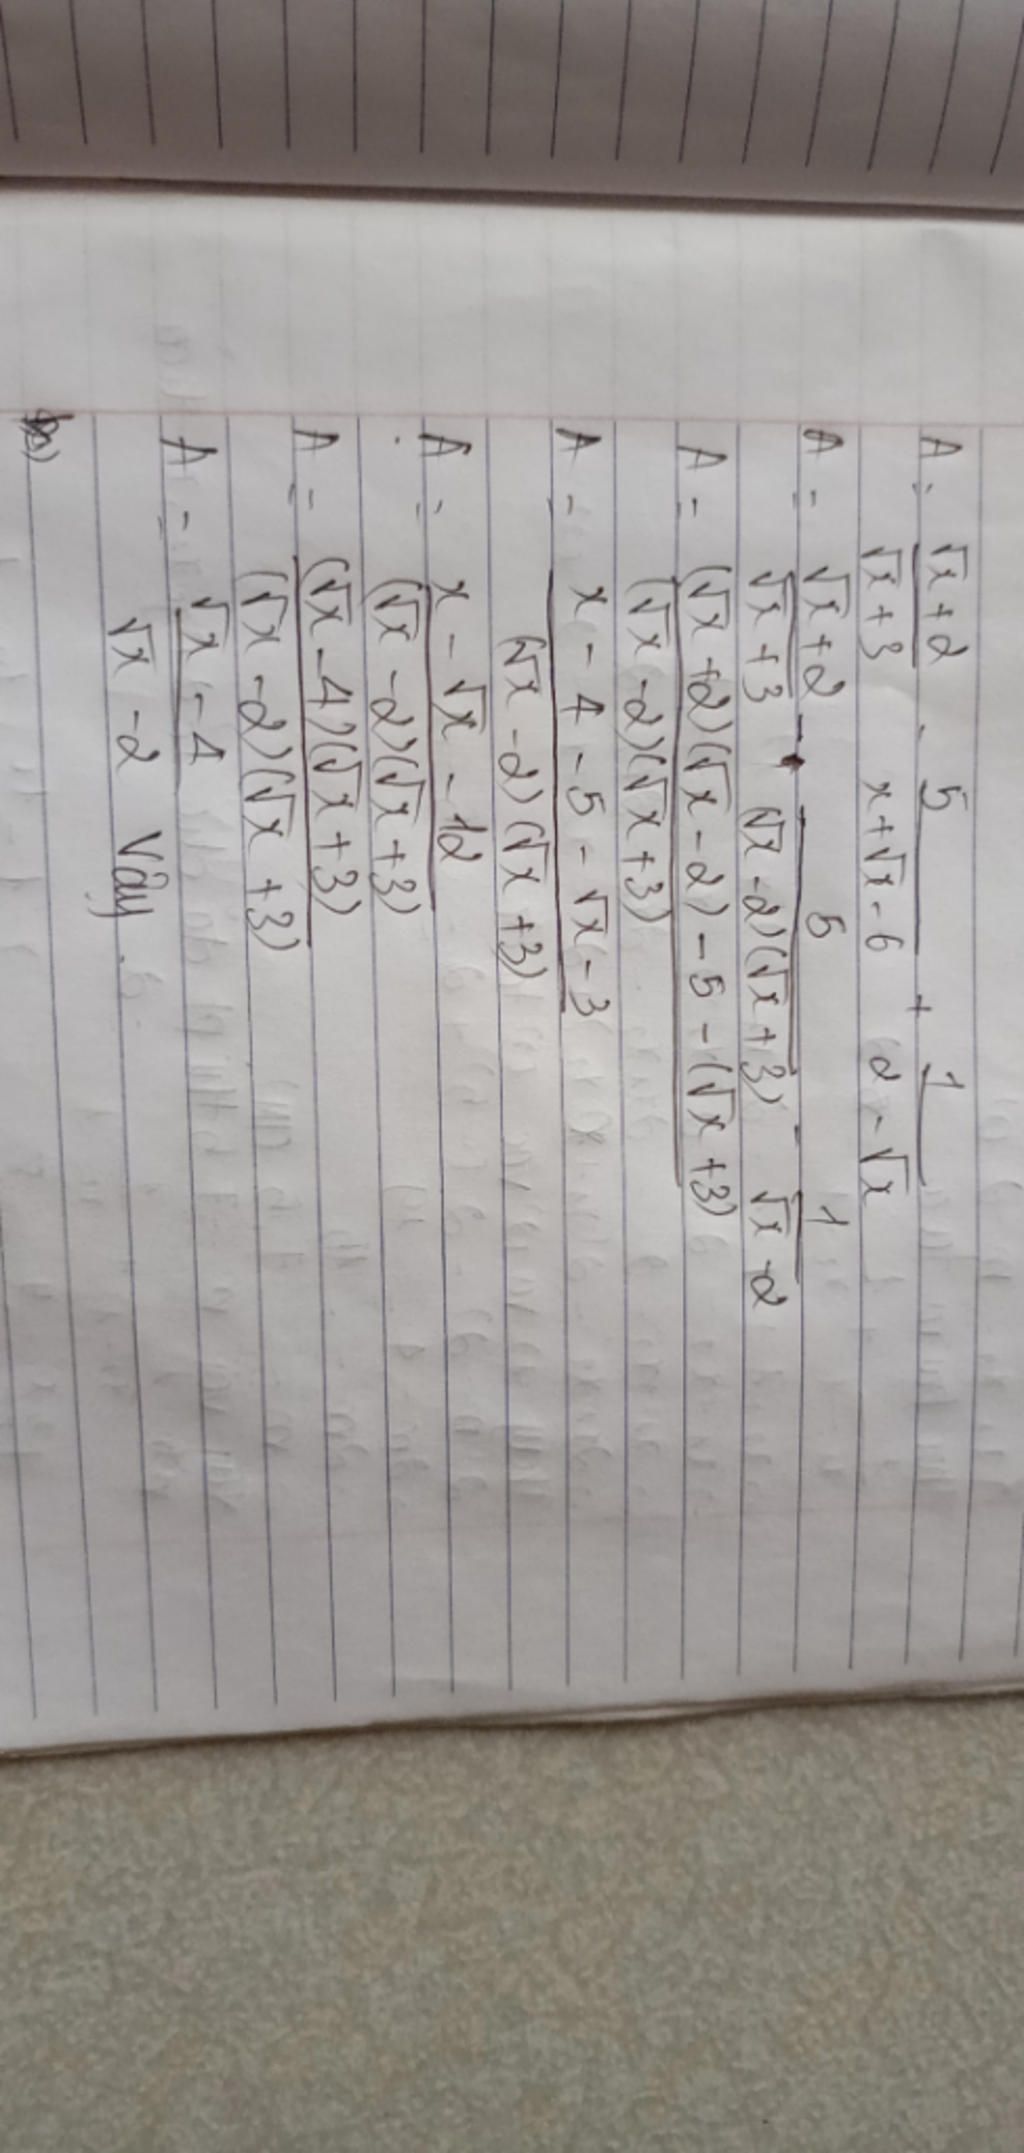 A = √x + 2 / √x + 3 - 5 / x + √x - 6 + 1 / 2 - √x
A = √x + 2 / √x + 3 - 5 / (√x - 2)(√x + 3) - 1 / √x - 2
A = (√x + 2)(√x - 2) - 5 - (√x + 3) / (√x - 2)(√x + 3)
A = x - 4 - 5 - √x - 3 / (√x - 2)(√x + 3)
A = x - √x - 12 / (√x - 2)(√x + 3)
A = (√x - 4)(√x + 3) / (√x - 2)(√x + 3)
A = √x - 4 / √x - 2 Vậy